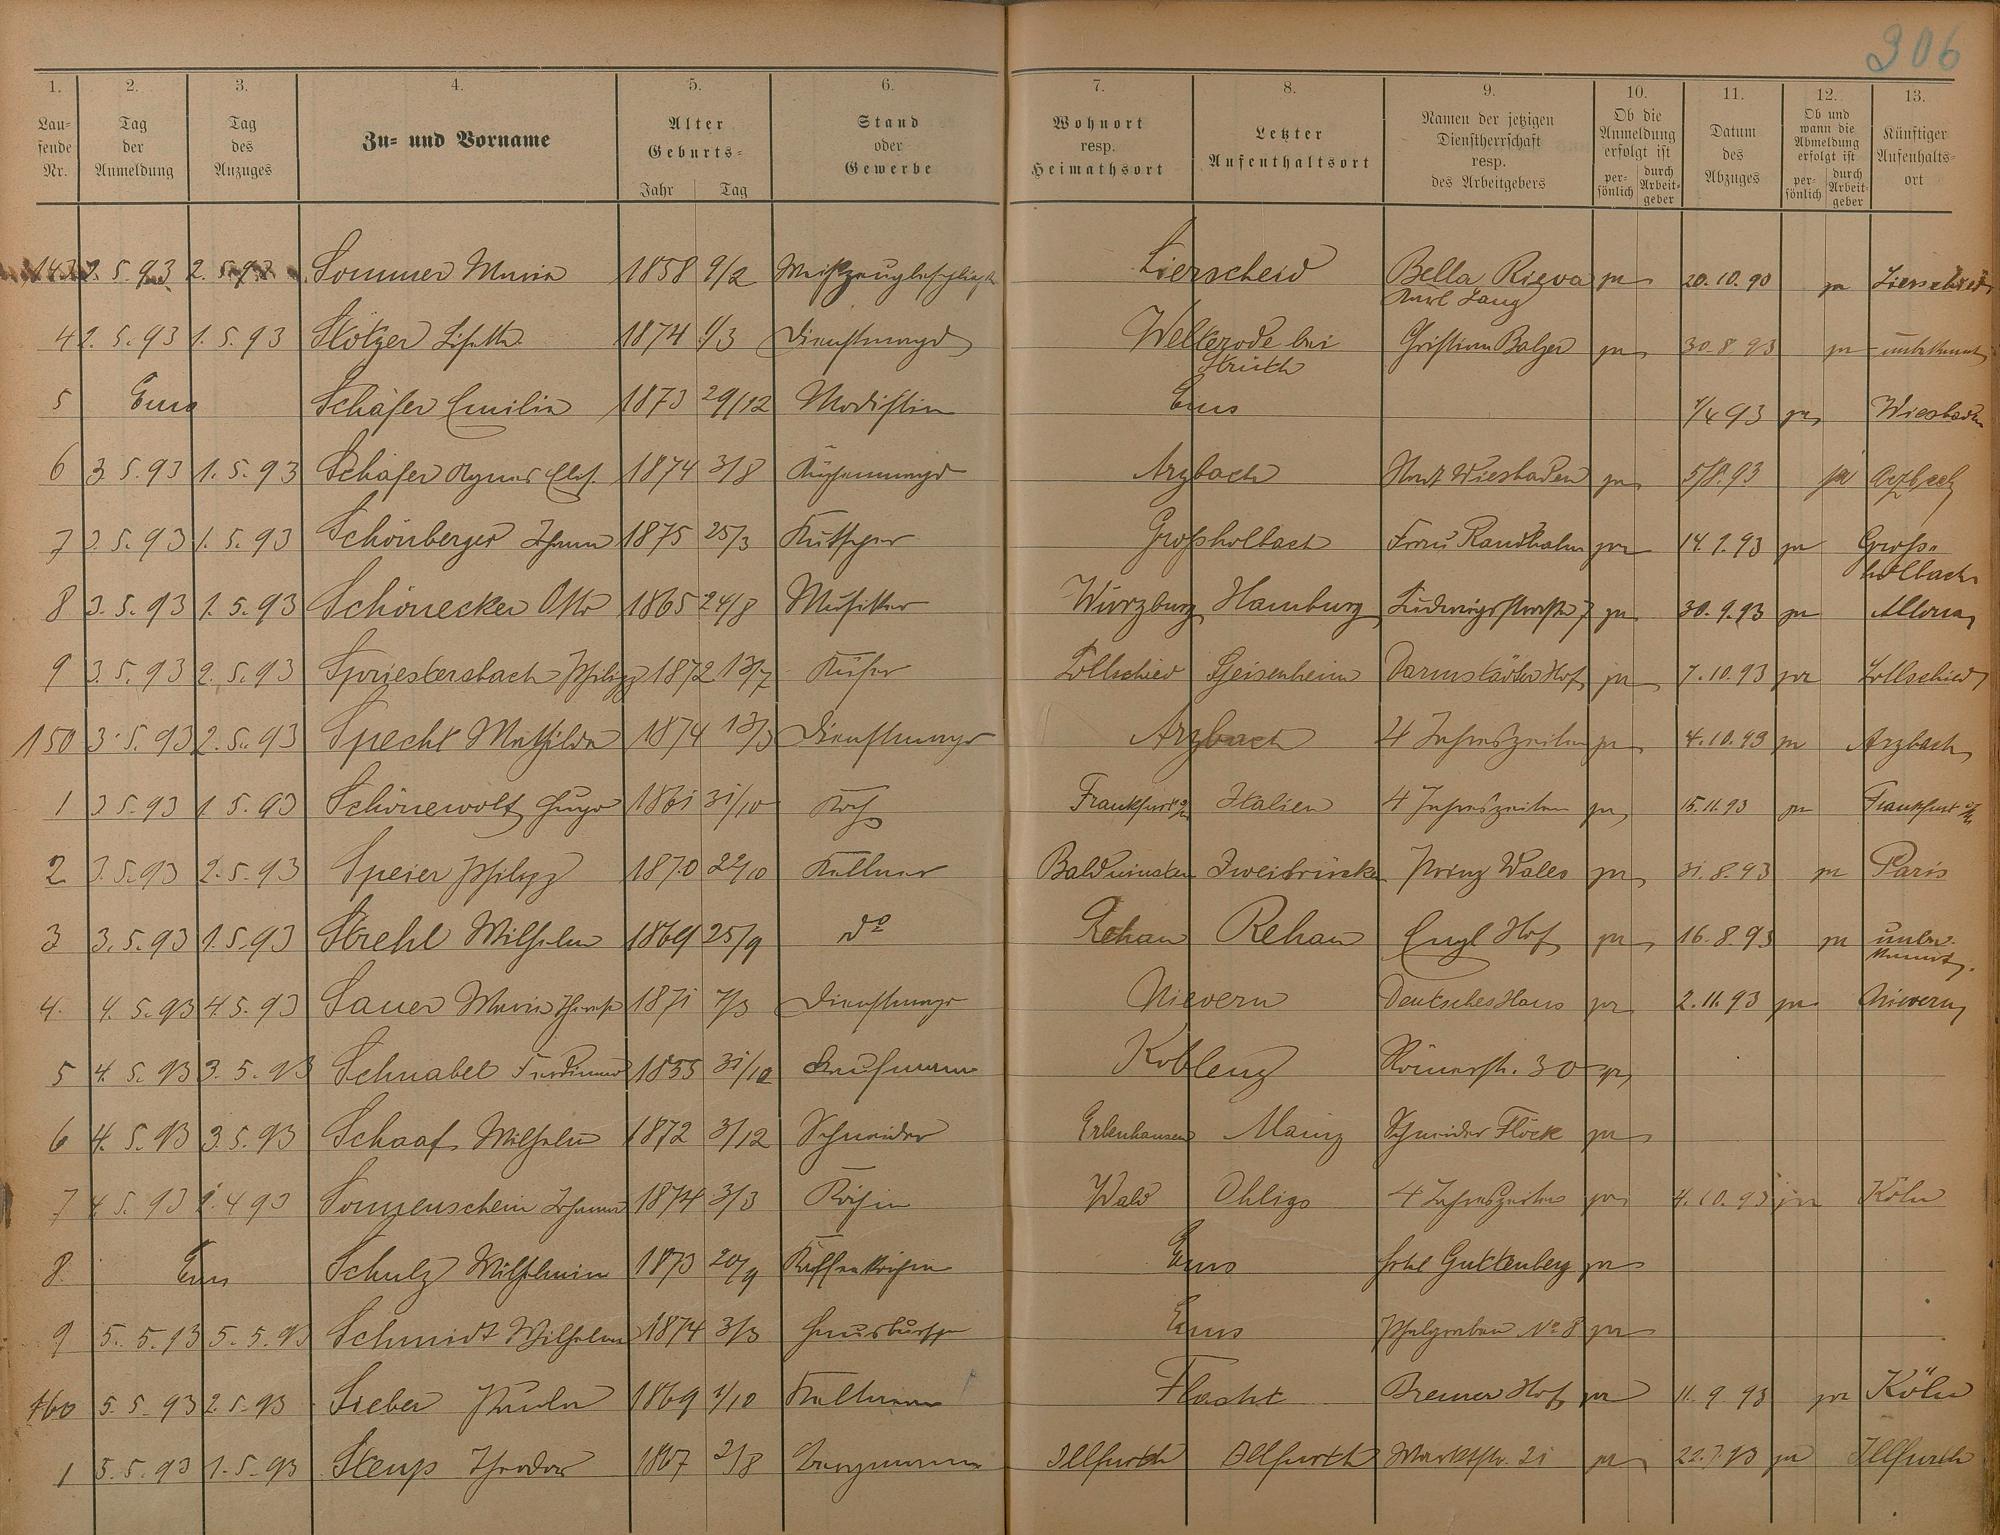 306
1. 2. 3. 4. 5. 6. 7. 8. 9. 10. 11. 12. 13.
Lau-fende Nr. Tag der Anmeldung Tag des Anzuges Zu- und Vorname Alter Geburts- Jahr Tag Stand oder Gewerbe Wohnort resp. Heimathsort Letzter Aufenthaltsort Namen der jetzigen Dienstherrschaft resp. des Arbeitgebers Ob die Anmeldung erfolgt ist per-sönlich durch Arbeit-geber Datum des Abzuges Ob und wann die Abmeldung erfolgt ist per-sönlich durch Arbeit-geber Künftiger Aufenhalts-ort
143 2. 5. 93 2. 5. 93 Sommer Maria 1858 9/2 Lierscheid Bella Rieva ja 20. 10. 90 ja Lierscheid
Karl Lang
4 2. 5. 93 1. 5. 93 Stötzer Lisette 1874 1/3 Dienstmagd Welterode bei Christian Balzer ja 30. 8. 93 ja unbekannt
Strüth
5 Ems Schäfer Emilie 1873 29/12 Modistin Ems 1/4 93 ja Wiesbaden
6 3. 5. 93 1. 5. 93 Schäfer Agnes Elis. 1874 3/8 Küchenmagd Arzbach Stadt Wiesbaden ja 5/8. 93 ja Arzbach
7 3. 5. 93 1. 5. 93 Schönberger Johann 1875 25/3 Kutscher Großholbach Frau Randhahn ja 14. 9. 93 ja Groß-
holbach
8 3. 5. 93 1. 5. 93 Schönecker Otto 1865 24/8 Musiker Würzburg Hamburg Ludwigstraße 7 ja 30. 9. 93 ja Altona
9 3. 5. 93 2. 5. 93 Spriestersbach Philipp 1872 13/7 Küfer Zollschied Geisenheim Darmstädter Hof ja 7. 10. 93 ja Zollschied
150 3. 5. 93 2. 5. 93 Specht Mathilde 1874 13/3 Dienstmagd Arzbach 4 Jahreszeiten ja 4. 10. 93 ja Arzbach
1 3. 5. 93 1. 5. 93 Schönewolf Hugo 1861 31/10 Koch Frankfurt a/M Italien 4 Jahreszeiten ja 15. 11. 93 ja Frankfurt a/M
2 3. 5. 93 2. 5. 93 Speier Philipp 1870 22/10 Kellner Balduinstein Zweibrücken Prinz Wales ja 31. 8. 93 ja Paris
3 3. 5. 93 1. 5. 93 Strehl Wilhelm 1869 25/9 do Rehau Rehau Engl Hof ja 16. 8. 93 ja unbe-
kannt.
4. 4. 5. 93 4. 5. 93 Sauer Maria Therese 1871 7/3 Dienstmagd Nievern Deutsches Haus ja 2. 11. 93 ja Nievern
5 4. 5. 93 3. 5. 93 Schnabel Ferdinand 1855 31/10 Kaufmann Koblenz Römerstr. 30 ja
6 4. 5. 93 3. 5. 93 Schaaf Wilhelm 1872 3/12 Schneider Erlenhausen Mainz Schneider Flöck ja
7 4. 5. 93 1. 4 93 Sonnenschein Johanna 1874 3/3 Köchin Wald Ohligs 4 Jahreszeiten ja 4. 10. 93 ja Köln
8 Ems Schulz Wilhelmine 1873 20/9 Kaffeeköchin Ems Hotel Guttenberg ja
9 5. 5. 93 5. 5. 93 Schmidt Wilhelm 1874 3/3 Hausbursche Ems Pfahlgraben No 8 ja
160 5. 5. 93 2. 5. 93 Sieber Paula 1869 1/10 Flacht Bremer Hof ja 11. 9. 93 ja Köln
1 5. 5. 93 1. 5. 93 Steup Theodor 1867 2/8 Bergmann Illfurth Illfurth Marktstr. 21 ja 22. 7. 93 ja Illfurth